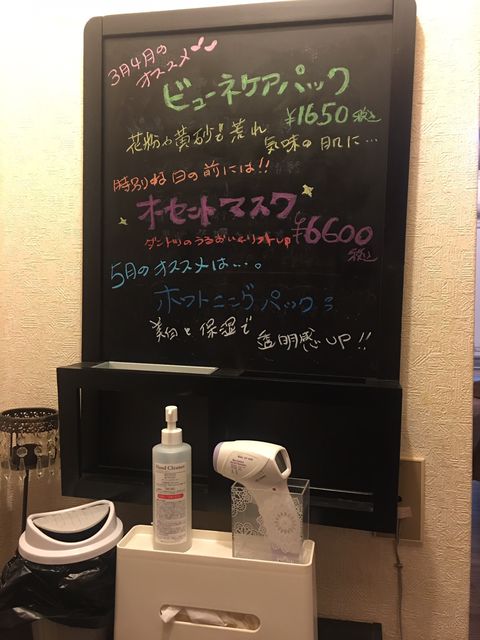 3月4月の
オススメ
ビューネケアパック
¥1650税込
花粉や黄砂で荒れ
気味の肌に…
特別な日の前には!!
オーセントマスク
¥6600
税込
ダントツのうるおいとリフトup
5月のオススメは…。
ホワトニングパック
美白と保湿で
透明感UP!!
Hand Cleanser